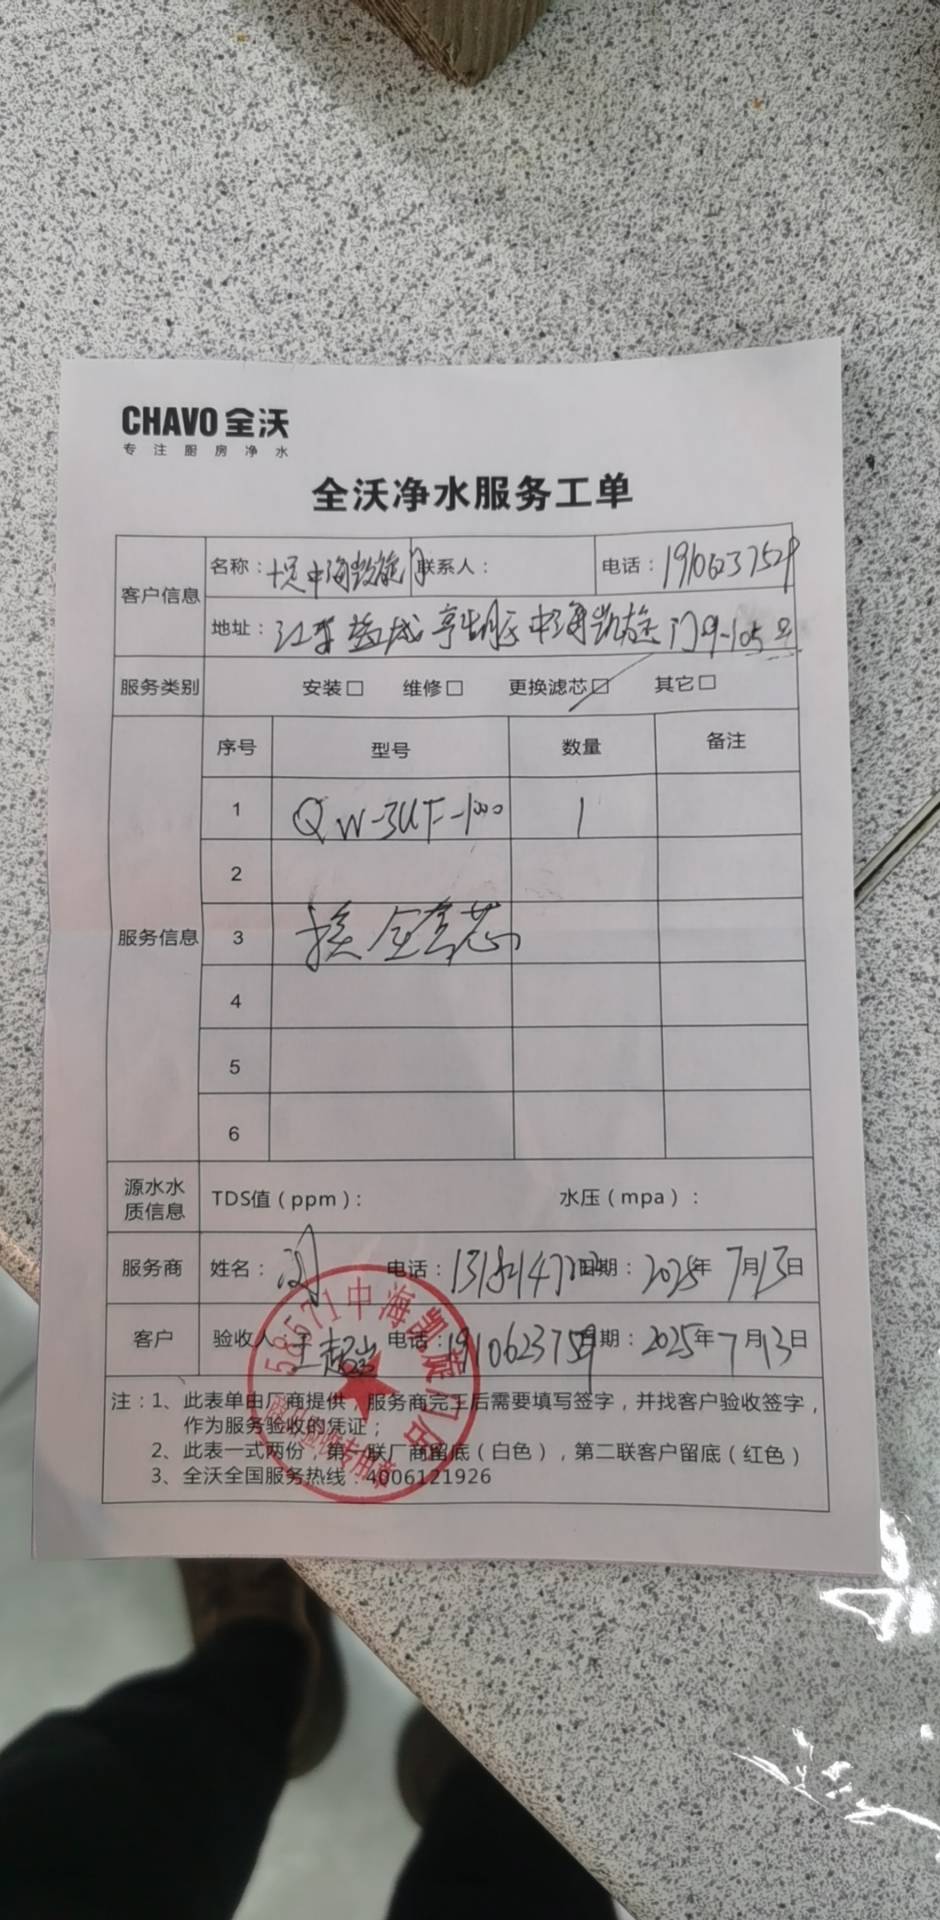 CHAVO 全沃
专注厨房净水
全沃净水服务工单
客户信息
名称： 中海凯旋门 联系人： 电话：
地址：江苏盐城亭 中海凯旋门9-105号
服务类别 安装□ 维修□ 更换滤芯□ 其它□
服务信息
序号 型号 数量 备注
1 QW-3UF-1000 1
2
3 换全套芯
4
5
6
源水水质信息 TDS值（ppm）： 水压（mpa）：
服务商 姓名： 电话： 日期：2025年7月13日
客户 验收人 王超 电话： 日期：2025年7月13日
注：1、此表单由厂商提供，服务商完工后需要填写签字，并找客户验收签字，
作为服务验收的凭证；
2、此表一式两份，第一联厂商留底（白色），第二联客户留底（红色）
3、全沃全国服务热线：4006121926
58571中海凯旋门店
验收专用章